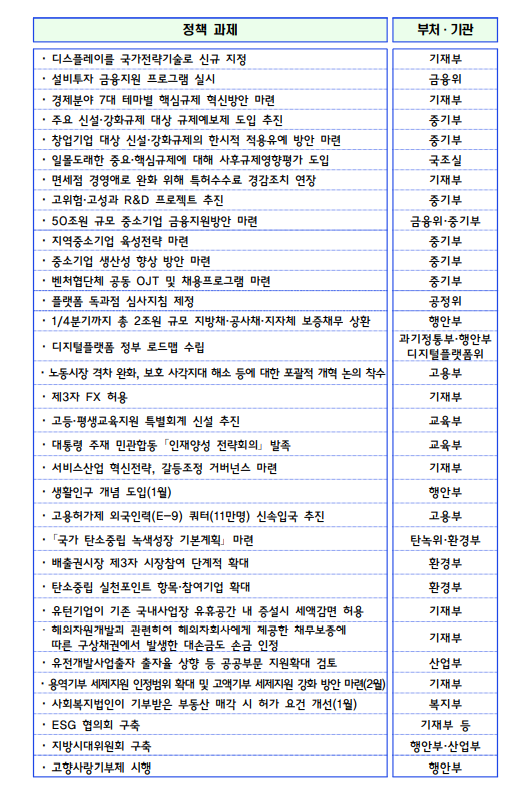 정책 과제 부처·기관
· 디스플레이를 국가전략기술로 신규 지정 기재부
· 설비투자 금융지원 프로그램 실시 금융위
· 경제분야 7대 테마별 핵심규제 혁신방안 마련 기재부
· 주요 신설·강화규제 대상 규제예보제 도입 추진 중기부
· 창업기업 대상 신설·강화규제의 한시적 적용유예 방안 마련 중기부
· 일몰도래한 중요·핵심규제에 대해 사후규제영향평가 도입 국조실
· 면세점 경영애로 완화 위해 특허수수료 경감조치 연장 기재부
· 고위험·고성과 R&D 프로젝트 추진 중기부
· 50조원 규모 중소기업 금융지원방안 마련 금융위·중기부
· 지역중소기업 육성전략 마련 중기부
· 중소기업 생산성 향상 방안 마련 중기부
· 벤처협단체 공동 OJT 및 채용프로그램 마련 중기부
· 플랫폼 독과점 심사지침 제정 공정위
· 1/4분기까지 총 2조원 규모 지방채·공사채·지자체 보증채무 상환 행안부
· 디지털플랫폼 정부 로드맵 수립 과기정통부·행안부
디지털플랫폼위
· 노동시장 격차 완화, 보호 사각지대 해소 등에 대한 포괄적 개혁 논의 착수 고용부
· 제3자 FX 허용 기재부
· 고등·평생교육지원 특별회계 신설 추진 교육부
· 대통령 주재 민관합동 「인재양성 전략회의」 발족 교육부
· 서비스산업 혁신전략, 갈등조정 거버넌스 마련 기재부
· 생활인구 개념 도입(1월) 행안부
· 고용허가제 외국인력(E-9) 쿼터(11만명) 신속입국 추진 고용부
· 「국가 탄소중립 녹색성장 기본계획」 마련 탄녹위·환경부
· 배출권시장 제3자 시장참여 단계적 확대 환경부
· 탄소중립 실천포인트 항목·참여기업 확대 환경부
· 유턴기업이 기존 국내사업장 유휴공간 내 증설시 세액감면 허용 기재부
· 해외자원개발과 관련하여 해외자회사에게 제공한 채무보증에
따른 구상채권에서 발생한 대손금도 손금 인정 기재부
· 유전개발사업출자 출자율 상향 등 공공부문 지원확대 검토 산업부
· 용역기부 세제지원 인정범위 확대 및 고액기부 세제지원 강화 방안 마련(2월) 기재부
· 사회복지법인이 기부받은 부동산 매각 시 허가 요건 개선(1월) 복지부
· ESG 협의회 구축 기재부 등
· 지방시대위원회 구축 행안부·산업부
· 고향사랑기부제 시행 행안부